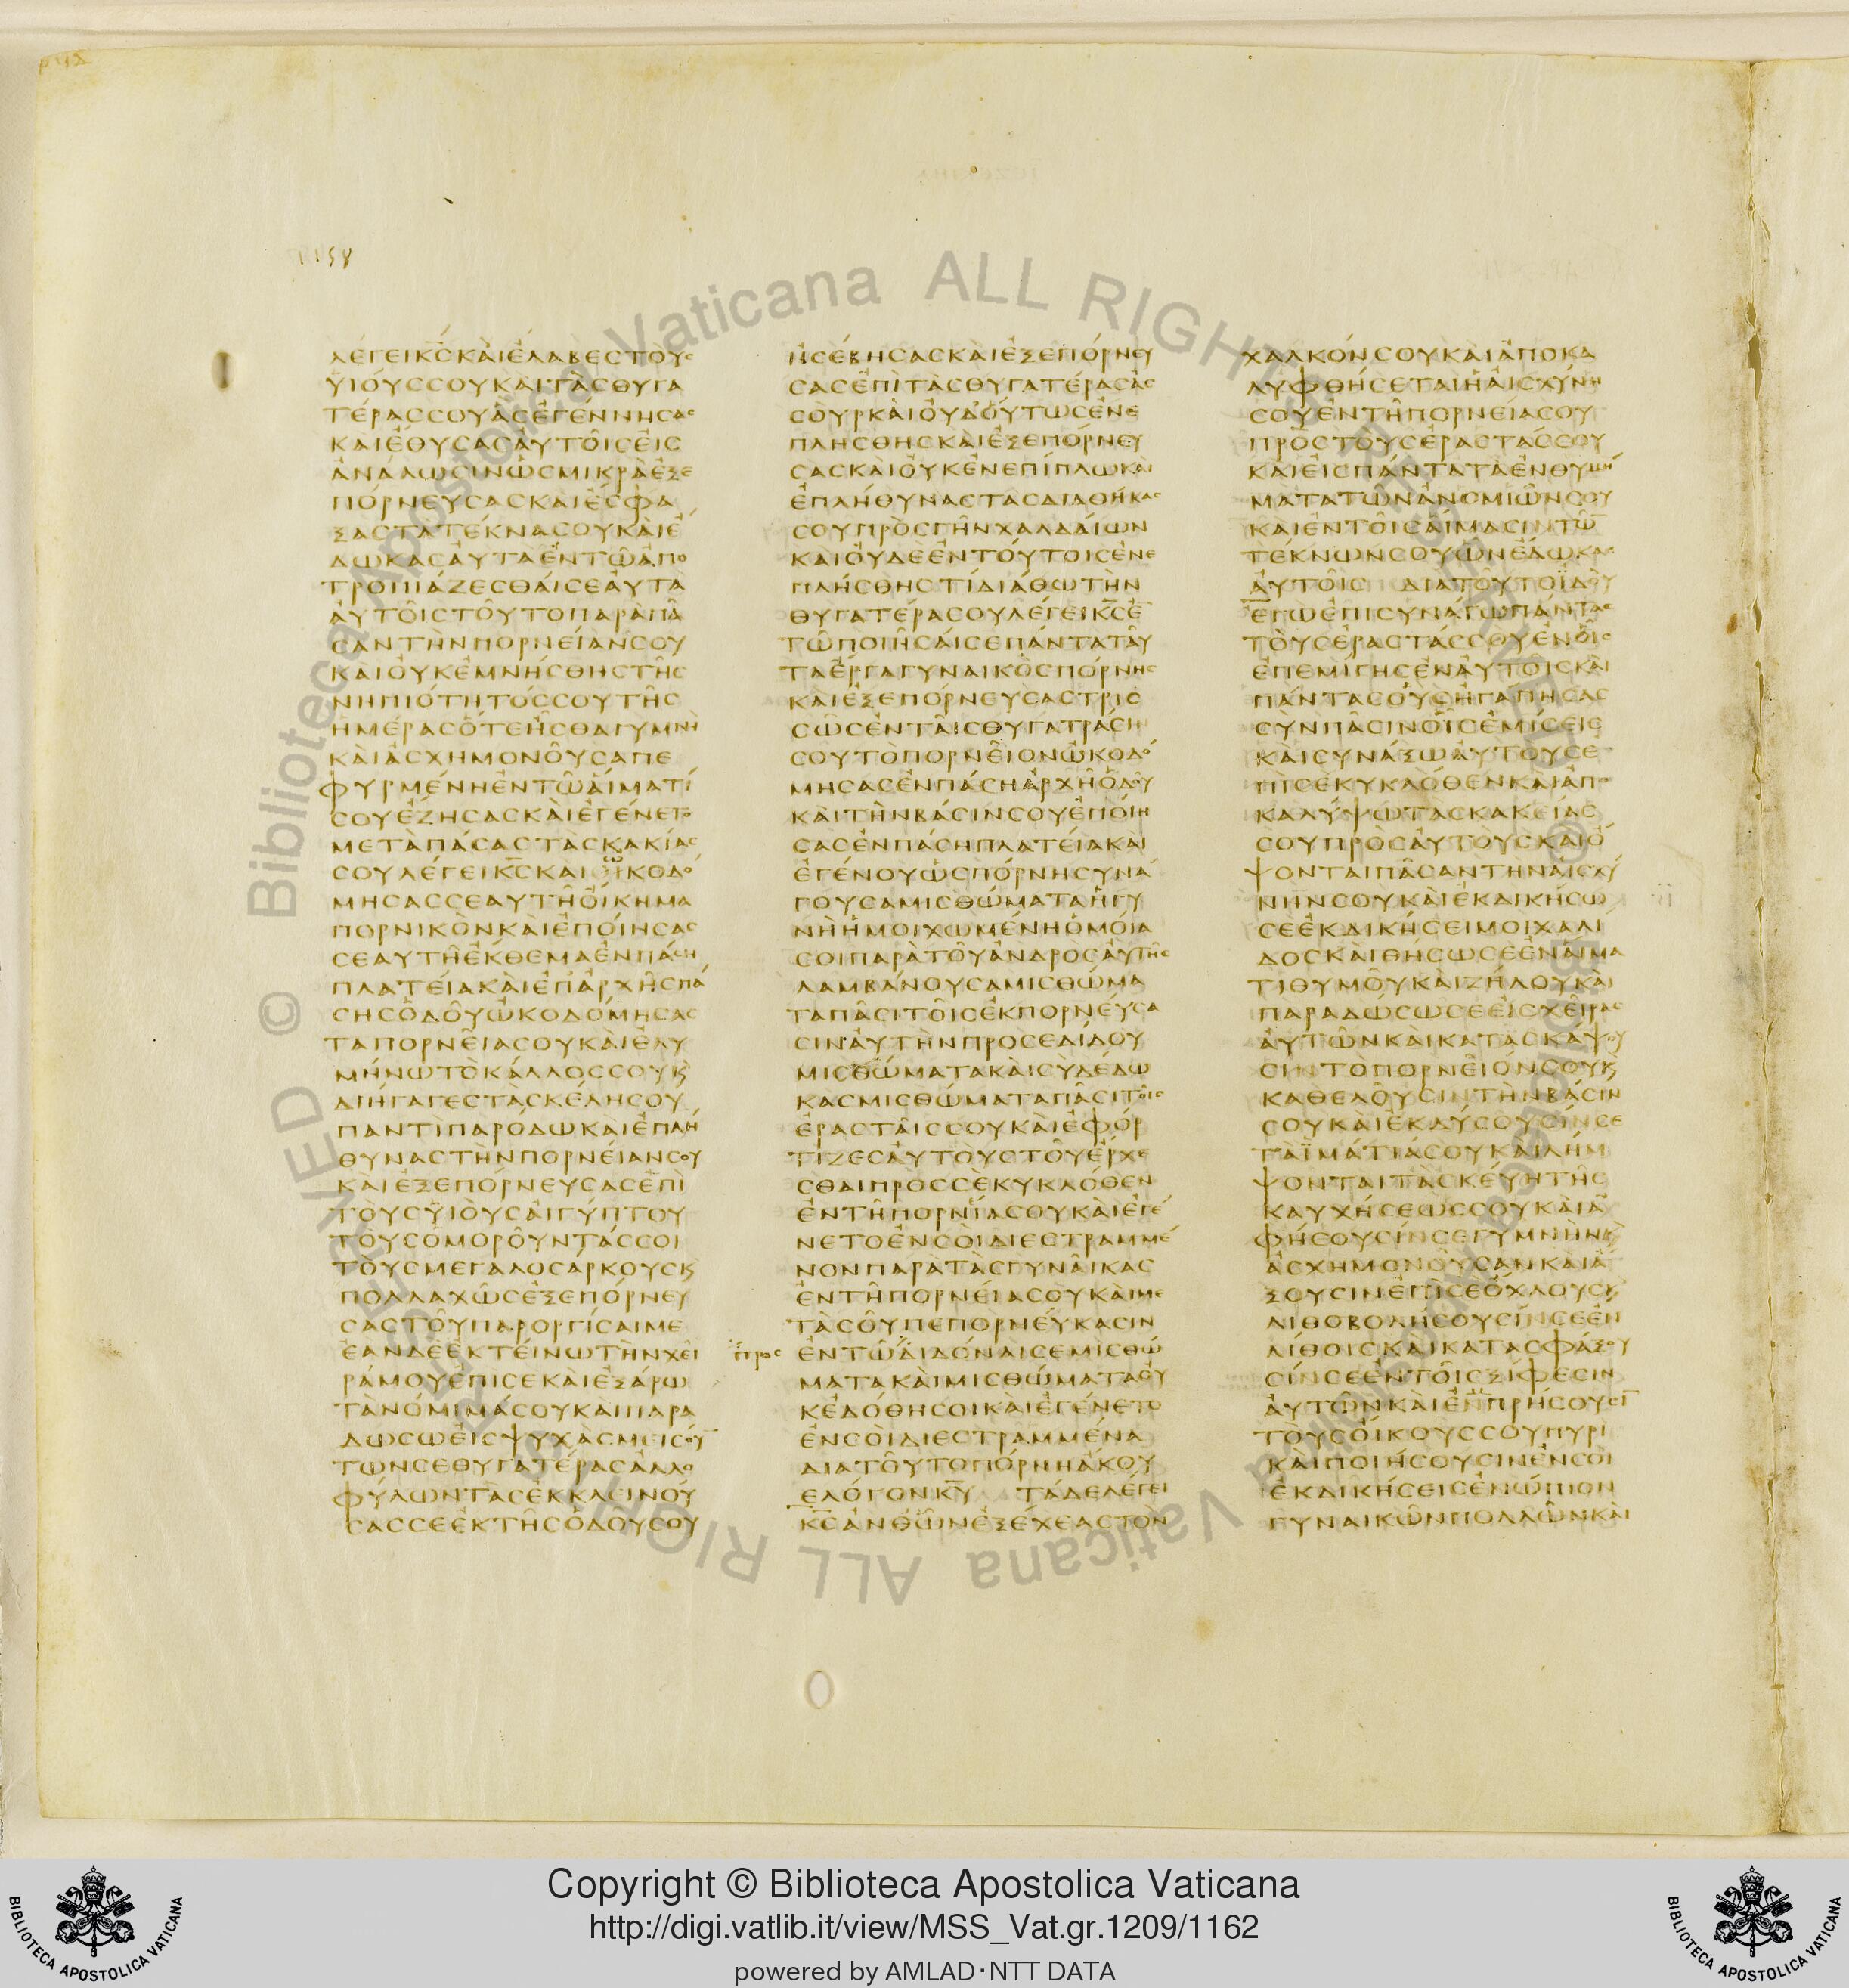 1158
ΛΕΓΕΙΚΣΚΑΙΕΛΑΒΕΣΤΟΥΣ
ΥΙΟΥΣΣΟΥΚΑΙΤΑΣΘΥΓΑ
ΤΕΡΑΣΣΟΥΑΣΕΓΕΝΝΗΣΑΣ
ΚΑΙΕΘΥΣΑΣΑΥΤΟΙΣΕΙΣ
ΑΝΑΛΩΣΙΝΩΣΜΙΚΡΑΕΞΕ
ΠΟΡΝΕΥΣΑΣΚΑΙΕΣΦΑ
ΞΑΣΤΑΤΕΚΝΑΣΟΥΚΑΙΕ
ΔΩΚΑΣΑΥΤΑΕΝΤΩΑΠΟ
ΤΡΟΠΙΑΖΕΣΘΑΙΣΕΑΥΤΑ
ΑΥΤΟΙΣΤΟΥΤΟΠΑΡΑΠΑ
ΣΑΝΤΗΝΠΟΡΝΕΙΑΝΣΟΥ
ΚΑΙΟΥΚΕΜΝΗΣΘΗΣΤΗΣ
ΝΗΠΙΟΤΗΤΟΣΣΟΥΤΗΣ
ΗΜΕΡΑΣΟΤΕΗΣΘΑΓΥΜΝΗ
ΚΑΙΑΣΧΗΜΟΝΟΥΣΑΠΕ
ΦΥΡΜΕΝΗΕΝΤΩΑΙΜΑΤΙ
ΣΟΥΕΖΗΣΑΣΚΑΙΕΓΕΝΕΤΟ
ΜΕΤΑΠΑΣΑΣΤΑΣΚΑΚΙΑΣ
ΣΟΥΛΕΓΕΙΚΣΚΑΙΟΙΚΟΔΟ
ΜΗΣΑΣΣΕΑΥΤΗΟΙΚΗΜΑ
ΠΟΡΝΙΚΟΝΚΑΙΕΠΟΙΗΣΑΣ
ΣΕΑΥΤΗΕΚΘΕΜΑΕΝΠΑΣΗ
ΠΛΑΤΕΙΑΚΑΙΕΠΑΡΧΗΣΠΑ
ΣΗΣΟΔΟΥΩΚΟΔΟΜΗΣΑΣ
ΤΑΠΟΡΝΕΙΑΣΟΥΚΑΙΕΛΥ
ΜΗΝΩΤΟΚΑΛΛΟΣΣΟΥΚ
ΔΙΗΓΑΓΕΣΤΑΣΚΕΛΗΣΟΥ
ΠΑΝΤΙΠΑΡΟΔΩΚΑΙΕΠΛΗ
ΘΥΝΑΣΤΗΝΠΟΡΝΕΙΑΝΣΟΥ
ΚΑΙΕΞΕΠΟΡΝΕΥΣΑΣΕΠΙ
ΤΟΥΣΥΙΟΥΣΑΙΓΥΠΤΟΥ
ΤΟΥΣΟΜΟΡΟΥΝΤΑΣΣΟΙ
ΤΟΥΣΜΕΓΑΛΟΣΑΡΚΟΥΣΚ
ΠΟΛΛΑΧΩΣΕΞΕΠΟΡΝΕΥ
ΣΑΣΤΟΥΠΑΡΟΡΓΙΣΑΙΜΕ
ΕΑΝΔΕΕΚΤΕΙΝΩΤΗΝΧΕΙ
ΡΑΜΟΥΕΠΙΣΕΚΑΙΕΞΑΡΩ
ΤΑΝΟΜΙΜΑΣΟΥΚΑΙΠΑΡΑ
ΔΩΣΩΕΙΣΨΥΧΑΣΜΕΙΣΟΥ
ΤΩΝΣΕΘΥΓΑΤΕΡΑΣΑΛΛΟ
ΦΥΛΩΝΤΑΣΕΚΚΛΕΙΝΟΥ
ΣΑΣΣΕΕΚΤΗΣΟΔΟΥΣΟΥ
ΗΣΕΒΗΣΑΣΚΑΙΕΞΕΠΟΡΝΕΥ
ΣΑΣΕΠΙΤΑΣΘΥΓΑΤΕΡΑΣΑΣ
ΣΟΥΡΚΑΙΟΥΔΟΥΤΩΣΕΝΕ
ΠΛΗΣΘΗΣΚΑΙΕΞΕΠΟΡΝΕΥ
ΣΑΣΚΑΙΟΥΚΕΝΕΠΙΠΛΩΚΑΙ
ΕΠΛΗΘΥΝΑΣΤΑΣΔΙΑΘΗΚΑΣ
ΣΟΥΠΡΟΣΓΗΝΧΑΛΔΑΙΩΝ
ΚΑΙΟΥΔΕΕΝΤΟΥΤΟΙΣΕΝΕ
ΠΛΗΣΘΗΣΤΙΔΙΑΘΩΤΗΝ
ΘΥΓΑΤΕΡΑΣΟΥΛΕΓΕΙΚΣΕ
ΤΩΠΟΙΗΣΑΙΣΕΠΑΝΤΑΤΑΥ
ΤΑΕΡΓΑΓΥΝΑΙΚΟΣΠΟΡΝΗΣ
ΚΑΙΕΞΕΠΟΡΝΕΥΣΑΣΤΡΙΣ
ΣΩΣΕΝΤΑΙΣΘΥΓΑΤΡΑΣΙΝ
ΣΟΥΤΟΠΟΡΝΕΙΟΝΩΚΟΔΟ
ΜΗΣΑΣΕΝΠΑΣΗΑΡΧΗΟΔΟΥ
ΚΑΙΤΗΝΒΑΣΙΝΣΟΥΕΠΟΙΗ
ΣΑΣΕΝΠΑΣΗΠΛΑΤΕΙΑΚΑΙ
ΕΓΕΝΟΥΩΣΠΟΡΝΗΣΥΝΑ
ΓΟΥΣΑΜΙΣΘΩΜΑΤΑΗΓΥ
ΝΗΗΜΟΙΧΩΜΕΝΗΟΜΟΙΑ
ΣΟΙΠΑΡΑΤΟΥΑΝΔΡΟΣΑΥΤΗΣ
ΛΑΜΒΑΝΟΥΣΑΜΙΣΘΩΜΑ
ΤΑΠΑΣΙΤΟΙΣΕΚΠΟΡΝΕΥΣΑ
ΣΙΝΑΥΤΗΝΠΡΟΣΕΔΙΔΟΥ
ΜΙΣΘΩΜΑΤΑΚΑΙΣΥΔΕΔΩ
ΚΑΣΜΙΣΘΩΜΑΤΑΠΑΣΙΤΟΙΣ
ΕΡΑΣΤΑΙΣΣΟΥΚΑΙΕΦΟΡ
ΤΙΖΕΣΑΥΤΟΥΣΤΟΥΕΡΧΕ
ΣΘΑΙΠΡΟΣΣΕΚΥΚΛΟΘΕΝ
ΕΝΤΗΠΟΡΝΙΑΣΟΥΚΑΙΕΓΕ
ΝΕΤΟΕΝΣΟΙΔΙΕΣΤΡΑΜΜΕ
ΝΟΝΠΑΡΑΤΑΣΓΥΝΑΙΚΑΣ
ΕΝΤΗΠΟΡΝΕΙΑΣΟΥΚΑΙΜΕ
ΤΑΣΟΥΠΕΠΟΡΝΕΥΚΑΣΙΝ
ΕΝΤΩΔΙΔΟΝΑΙΣΕΜΙΣΘΩ
ΜΑΤΑΚΑΙΜΙΣΘΩΜΑΤΑΟΥ
ΚΕΔΟΘΗΣΟΙΚΑΙΕΓΕΝΕΤΟ
ΕΝΣΟΙΔΙΕΣΤΡΑΜΜΕΝΑ
ΔΙΑΤΟΥΤΟΠΟΡΝΗΑΚΟΥ
ΕΛΟΓΟΝΚΥ ΤΑΔΕΛΕΓΕΙ
ΚΣΑΝΘΩΝΕΞΕΧΕΑΣΤΟΝ
ΧΑΛΚΟΝΣΟΥΚΑΙΑΠΟΚΑ
ΛΥΦΘΗΣΕΤΑΙΗΑΙΣΧΥΝΗ
ΣΟΥΕΝΤΗΠΟΡΝΕΙΑΣΟΥ
ΠΡΟΣΤΟΥΣΕΡΑΣΤΑΣΣΟΥ
ΚΑΙΕΙΣΠΑΝΤΑΤΑΕΝΘΥΜΗ
ΜΑΤΑΤΩΝΑΝΟΜΙΩΝΣΟΥ
ΚΑΙΕΝΤΟΙΣΑΙΜΑΣΙΝΤΩ
ΤΕΚΝΩΝΣΟΥΩΝΕΔΩΚΑΣ
ΑΥΤΟΙΣ ΔΙΑΤΟΥΤΟΙΔΟΥ
ΕΓΩΕΠΙΣΥΝΑΓΩΠΑΝΤΑΣ
ΤΟΥΣΕΡΑΣΤΑΣΣΟΥΕΝΟΙΣ
ΕΠΕΜΙΓΗΣΕΝΑΥΤΟΙΣΚΑΙ
ΠΑΝΤΑΣΟΥΣΗΓΑΠΗΣΑΣ
ΣΥΝΠΑΣΙΝΟΙΣΕΜΙΣΕΙΣ
ΚΑΙΣΥΝΑΞΩΑΥΤΟΥΣΕ
ΠΙΣΕΚΥΚΛΟΘΕΝΚΑΙΑΠΟ
ΚΑΛΥΨΩΤΑΣΚΑΚΕΙΑΣ
ΣΟΥΠΡΟΣΑΥΤΟΥΣΚΑΙΟ
ΨΟΝΤΑΙΠΑΣΑΝΤΗΝΑΙΣΧΥ
ΝΗΝΣΟΥΚΑΙΕΚΔΙΚΗΣΩ
ΣΕΕΚΔΙΚΗΣΕΙΜΟΙΧΑΛΙ
ΔΟΣΚΑΙΘΗΣΩΣΕΕΝΑΙΜΑ
ΤΙΘΥΜΟΥΚΑΙΖΗΛΟΥΚΑΙ
ΠΑΡΑΔΩΣΩΣΕΕΙΣΧΕΙΡΑΣ
ΑΥΤΩΝΚΑΙΚΑΤΑΣΚΑΨΟΥ
ΣΙΝΤΟΠΟΡΝΕΙΟΝΣΟΥΚ
ΚΑΘΕΛΟΥΣΙΝΤΗΝΒΑΣΙΝ
ΣΟΥΚΑΙΕΚΔΥΣΟΥΣΙΝΣΕ
ΤΑΙΜΑΤΙΑΣΟΥΚΑΙΛΗΜ
ΨΟΝΤΑΙΤΑΣΚΕΥΗΤΗΣ
ΚΑΥΧΗΣΕΩΣΣΟΥΚΑΙΑ
ΦΗΣΟΥΣΙΝΣΕΓΥΜΝΗΝΚ
ΑΣΧΗΜΟΝΟΥΣΑΝΚΑΙΑ
ΞΟΥΣΙΝΕΠΙΣΕΟΧΛΟΥΣΚ
ΛΙΘΟΒΟΛΗΣΟΥΣΙΝΣΕΕΝ
ΛΙΘΟΙΣΚΑΙΚΑΤΑΣΦΑΞΟΥ
ΣΙΝΣΕΕΝΤΟΙΣΞΙΦΕΣΙΝ
ΑΥΤΩΝΚΑΙΕΝΠΡΗΣΟΥΣΙ
ΤΟΥΣΟΙΚΟΥΣΣΟΥΠΥΡΙ
ΚΑΙΠΟΙΗΣΟΥΣΙΝΕΝΣΟΙ
ΕΚΔΙΚΗΣΕΙΣΕΝΩΠΙΟΝ
ΓΥΝΑΙΚΩΝΠΟΛΛΩΝΚΑΙ
© Biblioteca Apostolica Vaticana ALL RIGHTS RESERVED
Copyright © Biblioteca Apostolica Vaticana
http://digi.vatlib.it/view/MSS_Vat.gr.1209/1162
powered by AMLAD·NTT DATA
BIBLIOTECA APOSTOLICA VATICANA
BIBLIOTECA APOSTOLICA VATICANA